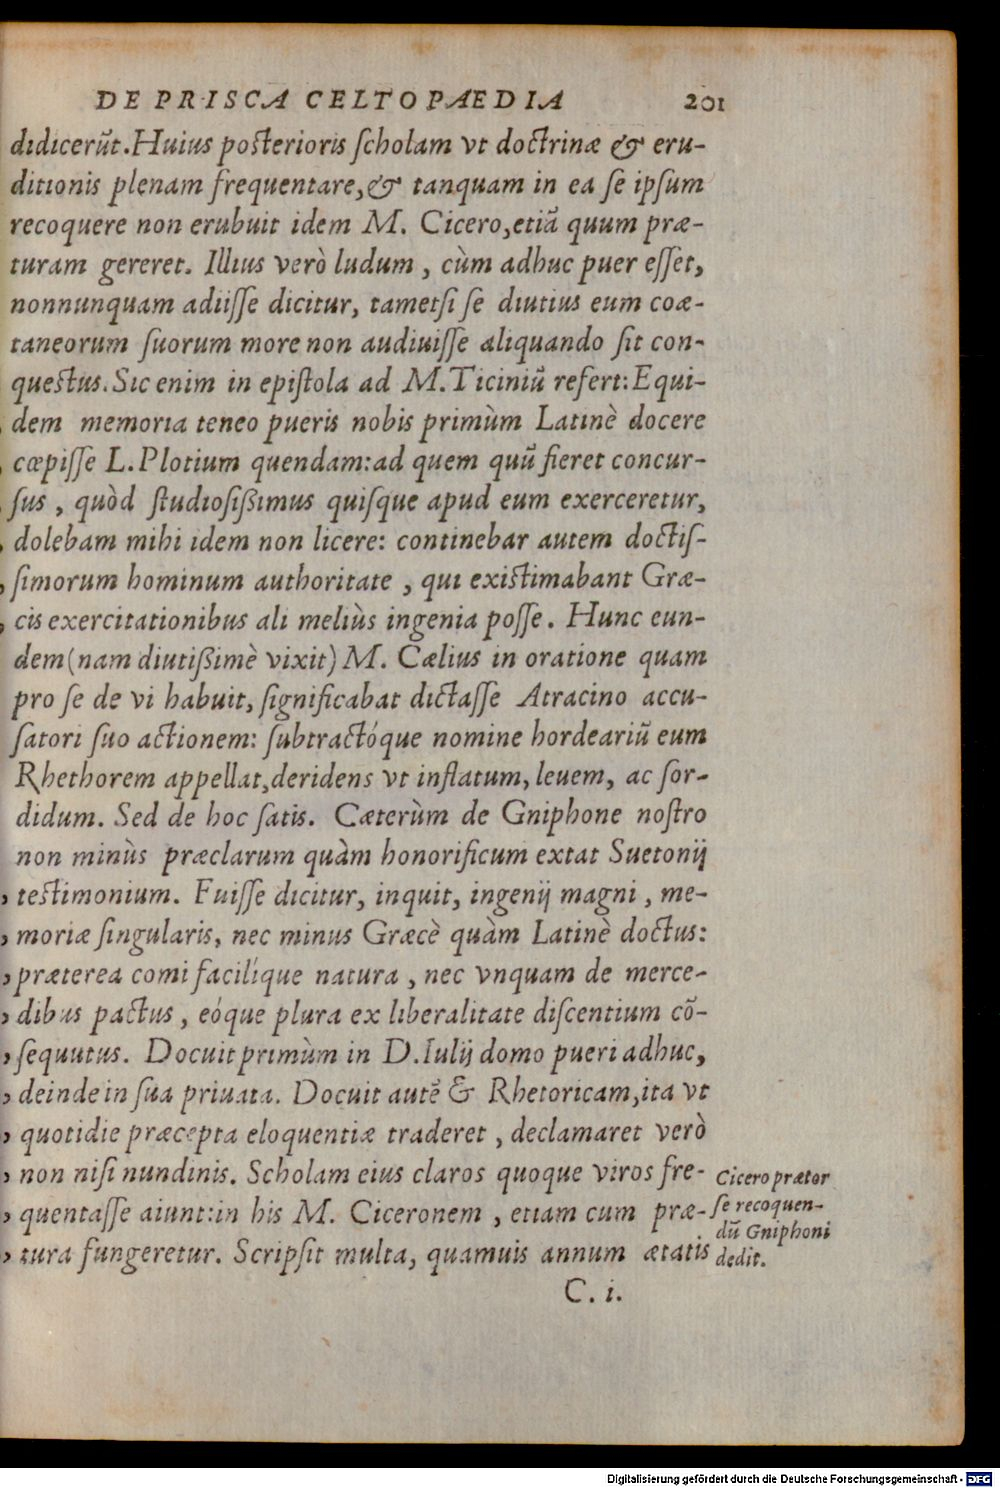 DE PRISCA CELTOPAEDIA 201
didicerũt. Huius posterioris ſcholam vt doctrinæ & eru-
ditionis plenam frequentare, & tanquam in ea ſe ipſum
recoquere non erubuit idem M. Cicero, etiã quum præ-
turam gereret. Illius verò ludum , cùm adhuc puer eſſet,
nonnunquam adiiſſe dicitur, tametſi ſe diutius eum coæ-
taneorum ſuorum more non audiuiſſe aliquando ſit con-
questus. Sic enim in epiſtola ad M. Ticiniũ refert: Equi-
dem memoria teneo pueris nobis primùm Latinè docere
cœpiſſe L. Plotium quendam: ad quem quũ fieret concur-
ſus , quòd ſtudioſißimus quiſque apud eum exerceretur,
dolebam mihi idem non licere: continebar autem doctiſ-
ſimorum hominum authoritate , qui existimabant Græ-
cis exercitationibus ali meliùs ingenia poſſe. Hunc eun-
dem (nam diutißimè vixit) M. Cælius in oratione quam
pro ſe de vi habuit, ſignificabat dictaſſe Atracino accu-
ſatori ſuo actionem: ſubtractóque nomine hordeariũ eum
Rhethorem appellat, deridens vt inflatum, leuem, ac ſor-
didum. Sed de hoc ſatis. Cæterùm de Gniphone noſtro
non minùs præclarum quàm honorificum extat Suetonij
testimonium. Fuiſſe dicitur, inquit, ingenij magni , me-
moriæ ſingularis, nec minus Græcè quàm Latinè doctus:
præterea comi facilíque natura , nec vnquam de merce-
dibus pactus , eóque plura ex liberalitate diſcentium cõ-
ſequutus. Docuit primùm in D. Iulij domo pueri adhuc,
deinde in ſua priuata. Docuit autẽ & Rhetoricam, ita vt
quotidie præcepta eloquentiæ traderet , declamaret verò
non niſi nundinis. Scholam eius claros quoque viros fre-
quentaſſe aiunt: in his M. Ciceronem , etiam cum præ-
tura fungeretur. Scripſit multa, quamuis annum ætatis
Cicero prætor
ſe recoquen-
dũ Gniphoni
dedit.
C. i.
Digitalisierung gefördert durch die Deutsche Forschungsgemeinschaft - DFG